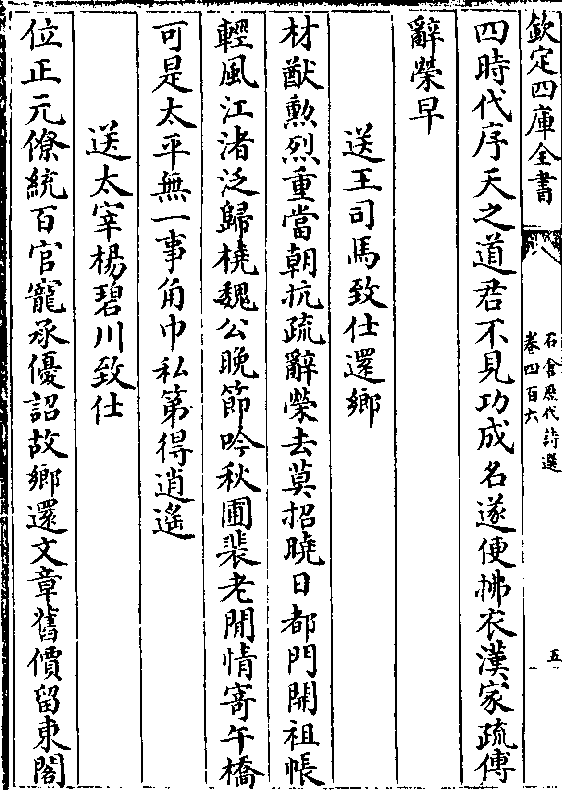 欽定四庫全書
石倉歷代詩選
卷四百六
五
四時代序天之道君不見功成名遂便拂衣漢家疏傅
辭榮早
送王司馬致仕還鄉
材猷勲烈重當朝抗疏辭榮去莫招曉日都門開祖帳
輕風江渚泛歸橈魏公晚節吟秋圃裴老閒情寄午橋
可是太平無一事角巾私第得逍遙
送太宰楊碧川致仕
位正元僚統百官寵承優詔故鄉還文章舊價留東閣